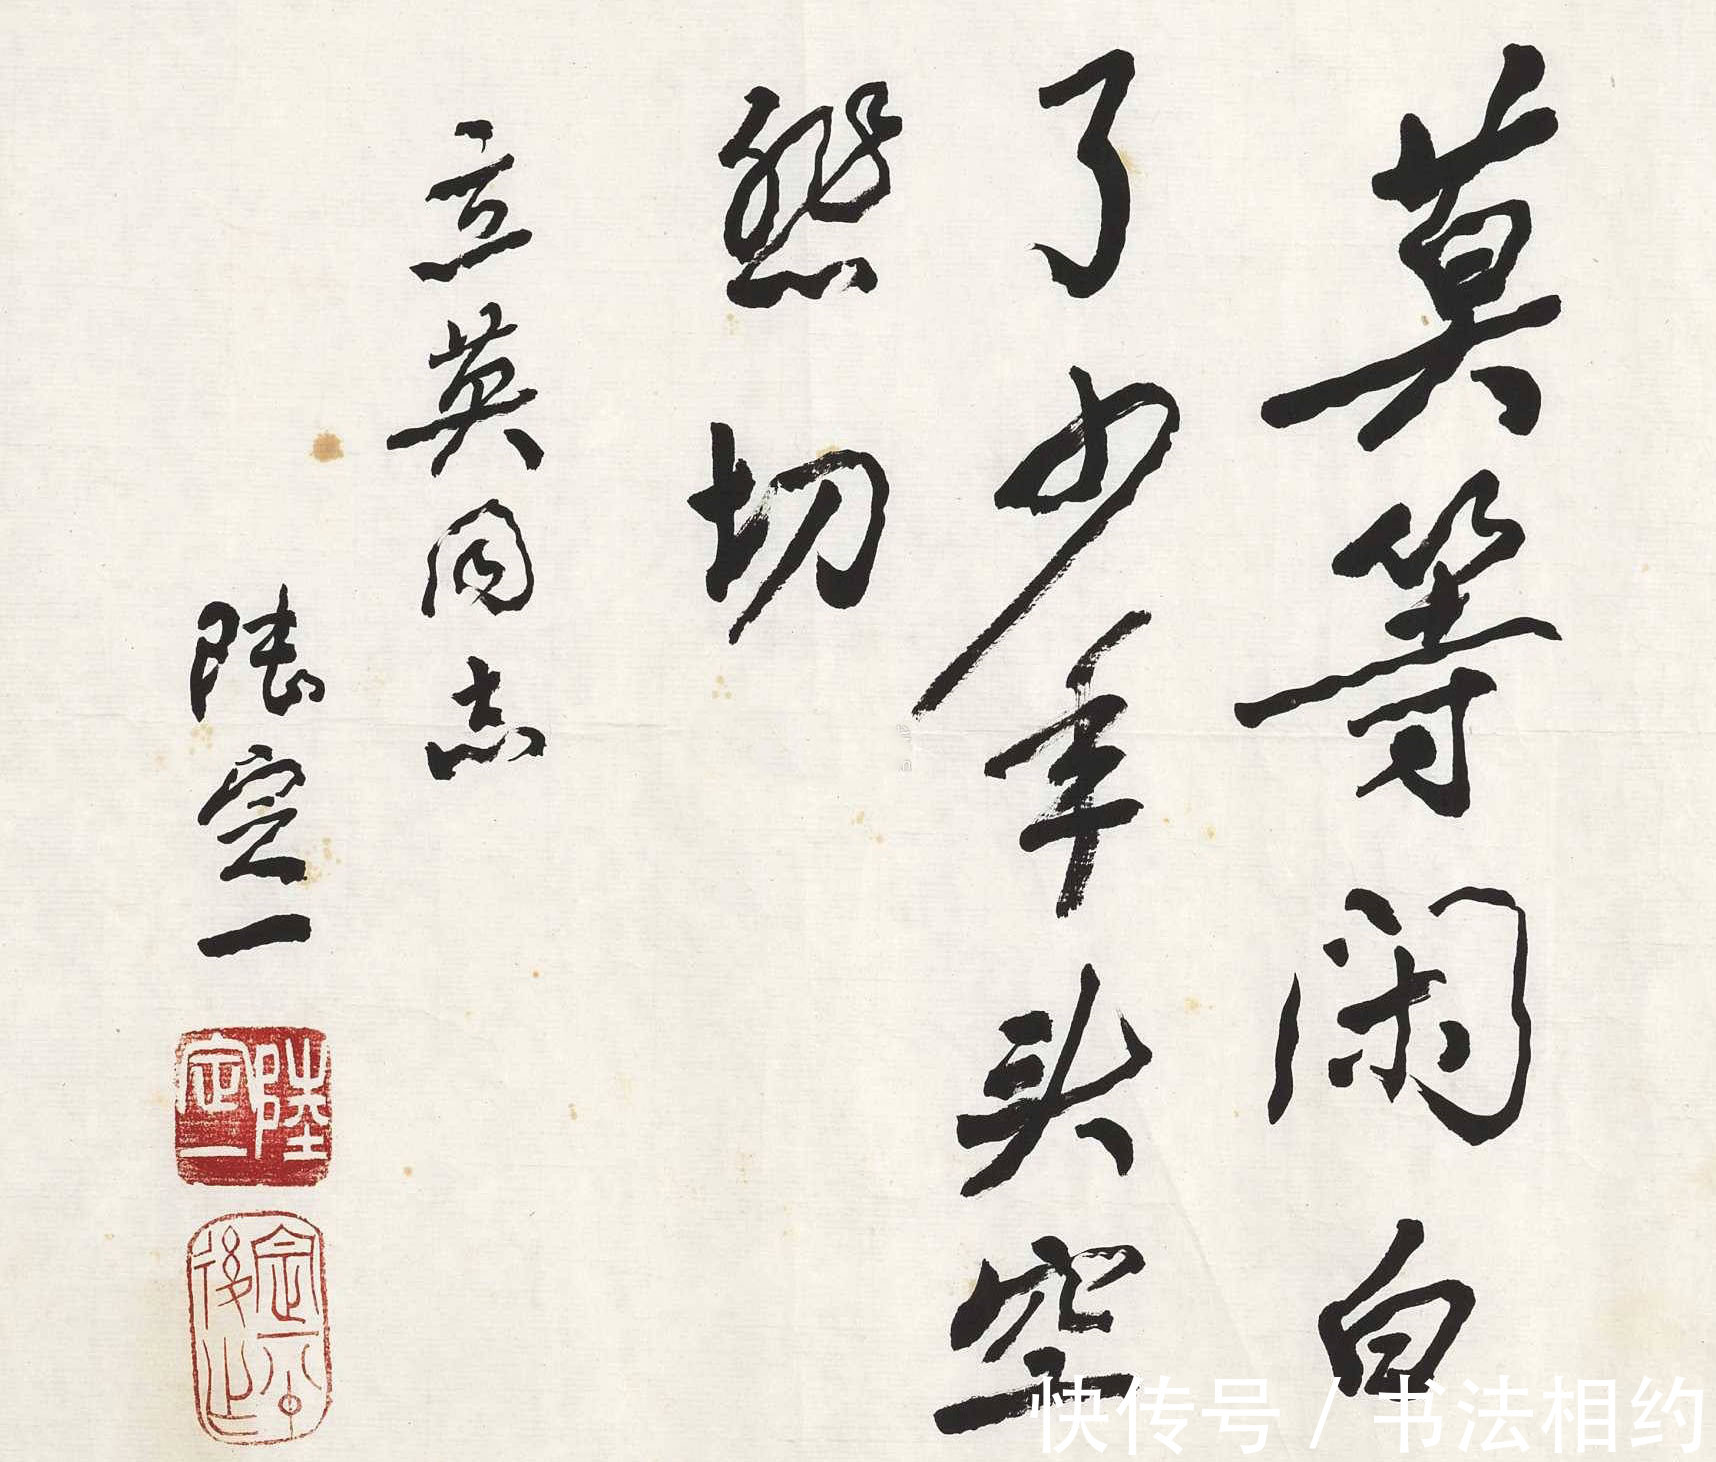 莫等闲白
了少年头空
悲切
立英同志
陆定一
陸定一
快传号 / 书法相约